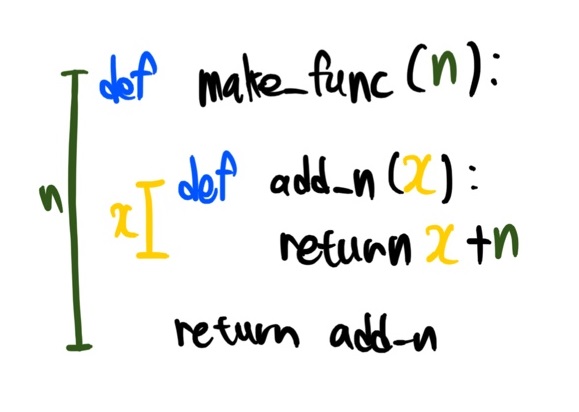 def make_func(n):
n
x
def add_n(x):
return x+n
return add_n